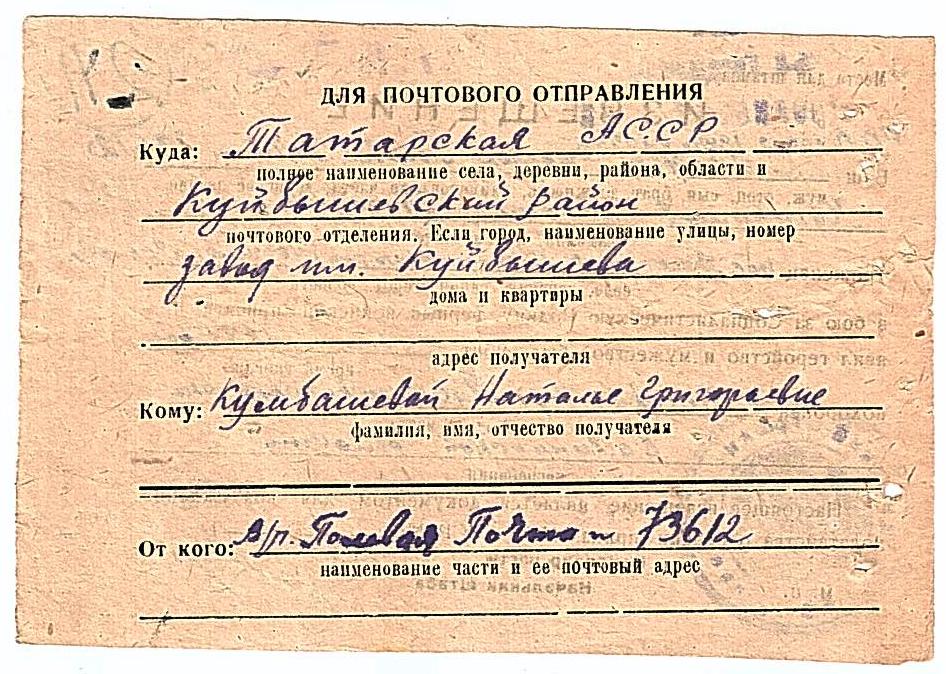 ДЛЯ ПОЧТОВОГО ОТПРАВЛЕНИЯ
Куда: Татарская АССР
полное наименование села, деревни, района, области и
Куйбышевский район
почтового отделения. Если город, наименование улицы, номер
завод им. Куйбышева
дома и квартиры
адрес получателя
Кому: Кумбашевой Наталье Григорьевне
фамилия, имя, отчество получателя
От кого: В/ч. Полевая Почта 73612
наименование части и ее почтовый адрес